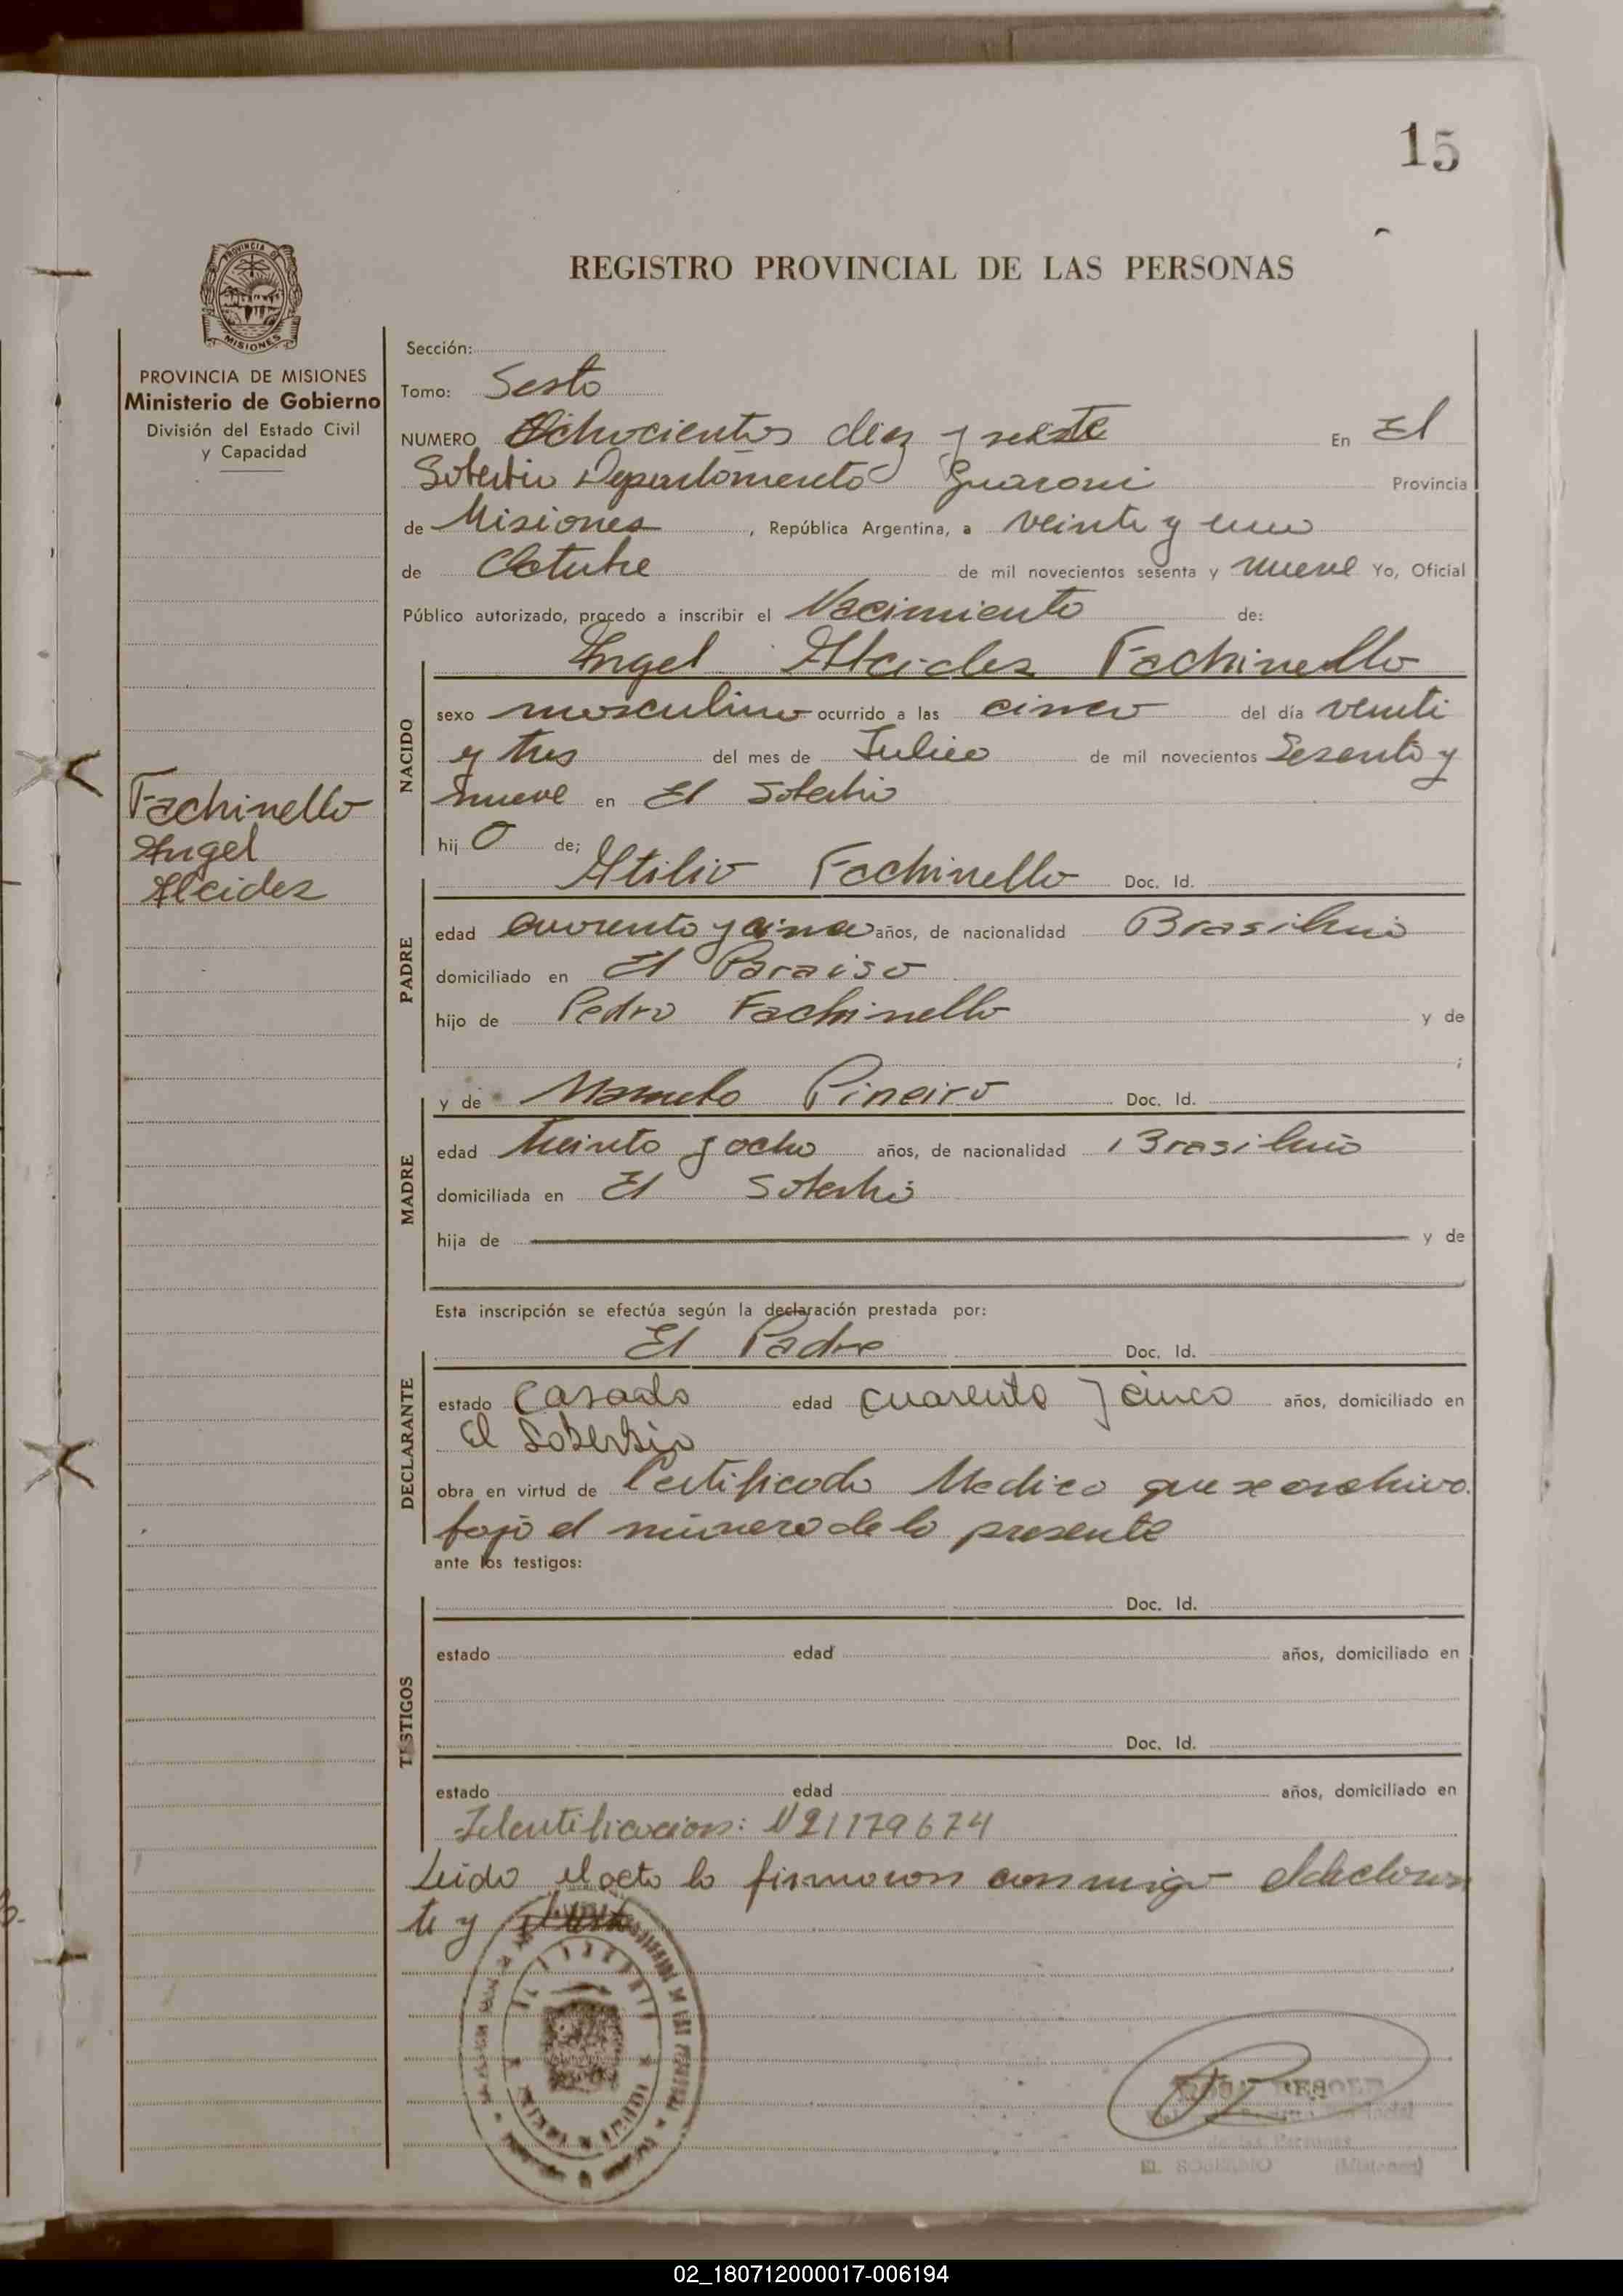 15
REGISTRO PROVINCIAL DE LAS PERSONAS
PROVINCIA DE MISIONES
Ministerio de Gobierno
División del Estado Civil
y Capacidad
Fachinello
Angel
Alcides
Sección:
Tomo: Sesto
NUMERO Ochocientos diez y En El
Soberbio Departamento Guarani Provincia
de Misiones, República Argentina, a veinte y uno
de Octubre de mil novecientos sesenta y nueve Yo, Oficial
Público autorizado, procedo a inscribir el Nacimiento de:
Angel Alcides Fachinello
NACIDO
sexo masculino ocurrido a las cinco del día veinti
y tres del mes de Julio de mil novecientos Sesenta y
nueve en El Soberbio
hijo de;
Atilio Fachinello Doc. Id.
PADRE
edad cuarenta y cinco años, de nacionalidad Brasileña
domiciliado en El Paraiso
hijo de Pedro Fachinello y de
;
y de Manuela Pineiro Doc. Id.
MADRE
edad treinta y ocho años, de nacionalidad Brasileña
domiciliada en El Soberbio
hija de y de
Esta inscripción se efectúa según la declaración prestada por:
El Padre Doc. Id.
DECLARANTE
estado Casado edad cuarenta y cinco años, domiciliado en
El Soberbio
obra en virtud de Certificado Medico que se archiva
bajo el número de la presente
ante los testigos:
Doc. Id.
TESTIGOS
estado edad años, domiciliado en
Doc. Id.
estado edad años, domiciliado en
Identificacion: N21179674
Leida el acta la firmaron conmigo el declaran
te y
EL SOBERBIO (Misiones)
02_180712000017-006194